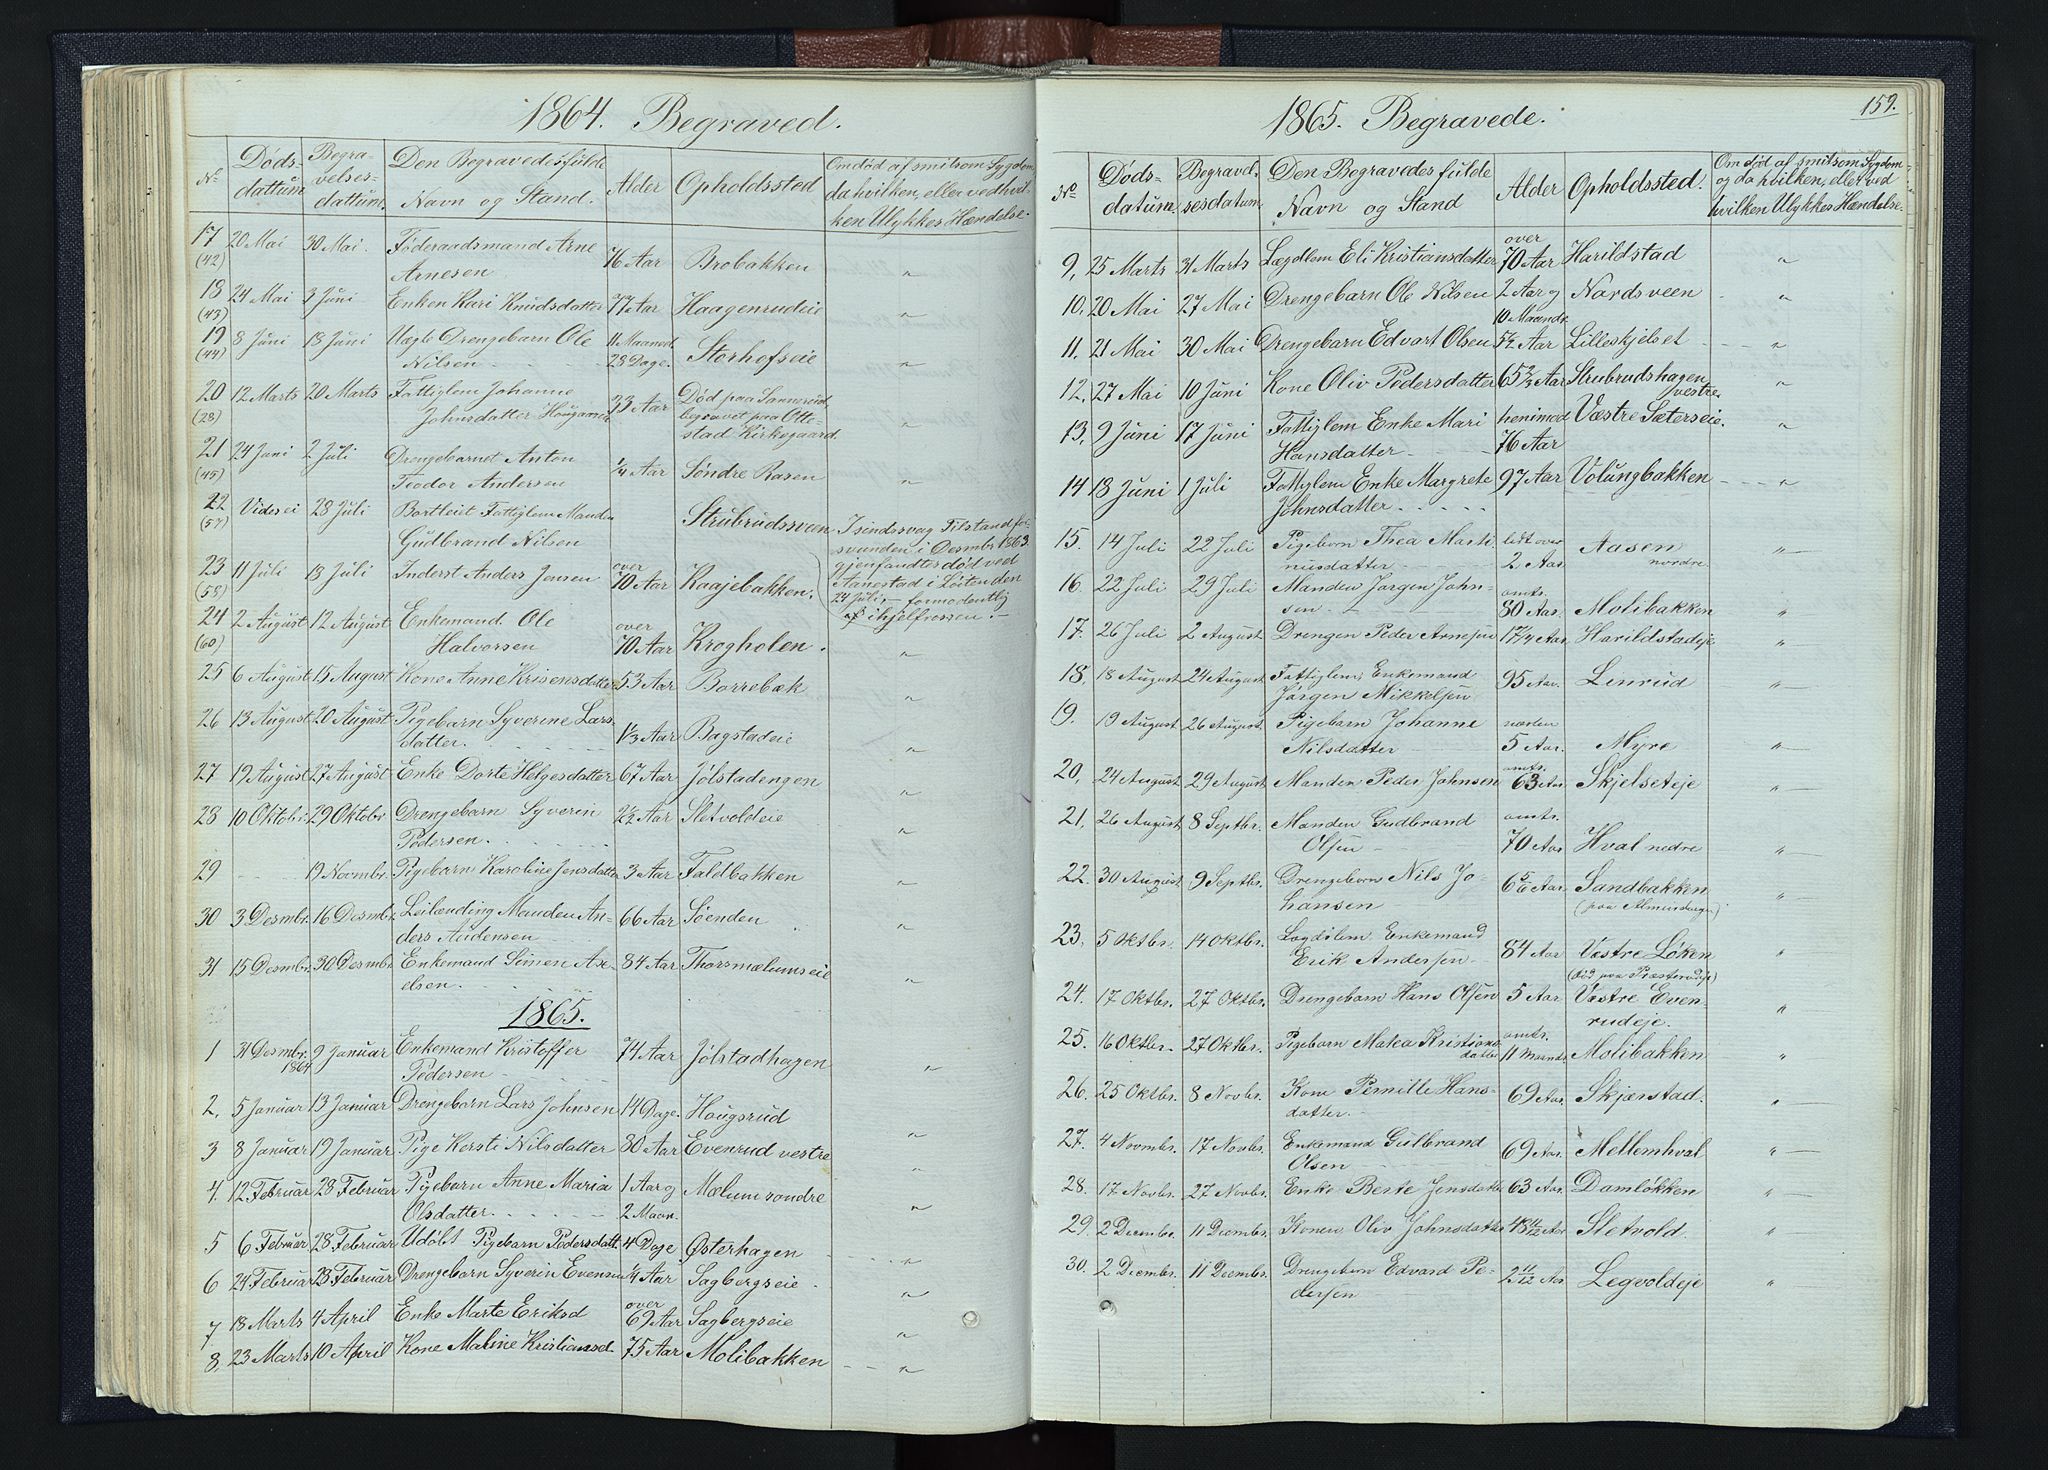 1864. Begraved.
No Døds-dattum Begra-velses-dattum. Den Begravedes fulde Navn og Stand. Alder Opholdssted Om død af smitsom Sygdom, da hvilken, eller ved hvil-ken Ulykkes Hændelse.
17 (42) 20 Mai 30 Mai. Føderaadsmand Arne Arnesen 76 Aar Brobakken "
18 (43) 24 Mai 3 Juni Enken Kari Knudsdatter 77 Aar Haagenrudeie "
19 (44) 8 Juni 18 Juni Uægte Drengebarn Ole Nilsen 11 Maaned 28 Dage. Storhofseie "
20 (28) 12 Marts 20 Marts Fattiglem Johanne Johnsdatter 33 Aar Død paa Sannerud, begravet paa Otte-stad Kirkegaard. "
21 (45) 24 Juni 2 Juli Drengebarnet Anton Teodor Andersen 1/4 Aar Søndre Rasen "
22 (57) Vides ei 28 Juli Bortleit Fattiglem Manden Gudbrand Nilsen Strubrudsveen I sindssvag Tilstand for-svunden i Desmbr. 1863. gjenfandtes død ved Aanestad i Løten den 24 Juli, formodentlig ihjelfrossen.
23 (58) 11 Juli 13 Juli Inderst Anders Jensen over 70 Aar Kaajebakken.
24 (60) 2 August 12 August Enkemand Ole Halvorsen over 70 Aar Krogholen. "
25 6 August 15 August Kone Anne Krisensdatter 53 Aar Borrebæk "
26 13 August 20 August Pigebarn Syverine Lars-datter. 1 1/3 Aar Bagstadeie "
27 19 August 27 August Enke Dorte Helgesdatter 67 Aar Jølstadengen "
28 10 Oktobr. 29 Oktobr Drengebarn Syverin Pedersen. 2 1/2 Aar Sletvoldeie "
29 - - 19 Novmbr. Pigebarn Karoline Jensdatter 3 Aar Faldbakken "
30 3 Desmbr. 16 Desmbr. Leilænding Manden An-ders Audensen 66 Aar Søenden "
31 15 Desmbr. 30 Desmbr. Enkemand Simen Ax-elsen. 84 Aar Thorsmælumseie "
1865.
1 31 Desmbr. 1864 9 Januar Enkemand Kristoffer Pedersen 74 Aar Jølstadhagen "
2, 5 Januar 13 Januar Drengebarn Lars Johnsen 14 Dage. Hougsrud "
3 8 Januar 19 Januar Pige Kersti Nilsdatter 30 Aar Evenrud vestre "
4. 12 Februar 28 Februar Pigebarn Anne Maria Olsdatter. 1 Aar og 2 Maan. Mælum søndre "
5 6 Februar 28 Februar Udøbt Pigebarn Pedersdatt. 4 Dage Østerhagen "
6 24 Februar 28 Februar Drengebarn Syverin Evensen 1/4 Aar Sagbergseie. "
7 18 Marts 4 April Enke Marte Eriksd over 69 Aar Sagbergseie "
8. 23 Marts 10 April Kone Maline Kristiansd 75 Aar Molibakken "
1865. Begravede.
159.
No Døds-datum. Begravel-sesdatum. Den Begravedes fulde Navn og Stand Alder Opholdssted. Om død af smitsom Sygdom, og da hvilken, eller ved hvilken Ulykkes Hændelse.
9, 25 Marts 31 Marts Lægdlem Eli Kristiansdatter over 70 Aar Harildstad "
10, 20 Mai 27 Mai Drengebarn Ole Nilsen 2 Aar og 10 Maander Nordsveen "
11, 21 Mai 30 Mai Drengebarn Edvart Olsen 5 1/2 Aar Lilleskjelset "
12, 27 Mai 10 Juni Kone Oliv Pedersdatter 65 2/3 Aar Strubrudshagen vestre. "
13, 9 Juni 17 Juni Fattiglem Enke Mari Hansdatter henimod 76 Aar Væstre Sæterseie. "
14 18 Juni 1 Juli Fattiglem Enke Margrete Johnsdatter 97 Aar Volungbakken "
15. 14 Juli 22 Juli Pigebarn Thea Marti-nusdatter lidt over 2 Aar. Aasen nordre "
16. 22 Juli 29 Juli Manden Jørgen John-sen. omtr. 80 Aar. Molibakken "
17. 26 Juli 2 August Drengen Peder Arnesen 17 1/4 Aar. Harildstadeje "
18, 18 August 24 August Fattiglem, Enkemand Jørgen Mikkelsen 95 Aar. Linrud "
19. 19 August 26 August. Pigebarn Johanne Nilsdatter næsten 5 Aar. Myre "
20, 24 August 29 August Manden Peder Johnsen omtr. 63 Aar. Skjelseteje "
21, 26 August 8 Septbr. Manden Gudbrand Olsen omtr. 70 Aar Hval nedre "
22. 30 August 9 Septbr. Drengebarn Nils Jo-hansen 6 5/6 Aar. Sandbakken (paa Almindingen) "
23, 5 Oktbr. 14 Oktbr. Lægdslem Enkemand Erik Andersen 84 Aar Væstre Løken (død paa Præsterudeje) "
24. 17 Oktbr. 27 Oktbr. Drengebarn Hans Olsen 5 Aar Væstre Even-rudeje. "
25. 16 Oktbr. 27 Oktbr. Pigebarn Matea Kristians-datter omtr. 11 Maander Molibakken "
26. 25 Oktbr. 8 Novbr. Kone Pernille Hans-datter. 69 Aar. Skjærstad. "
27. 4 Novmbr. 17 Novbr. Enkemand Gulbrand Olsen 69 Aar. Mellemhval "
28. 17 Novbr. 27 Novbr. Enke Berte Jensdatter 63 Aar. Damløkken "
29. 2 Decmbr. 11 Decmbr. Konen Oliv Johnsdatter 48 11/12 Aar Sletvold. "
30. 2 Decmbr. 11 Decmbr. Drengebarn Edvard Pe-dersen 2 11/12 Aar Legvoldeje "